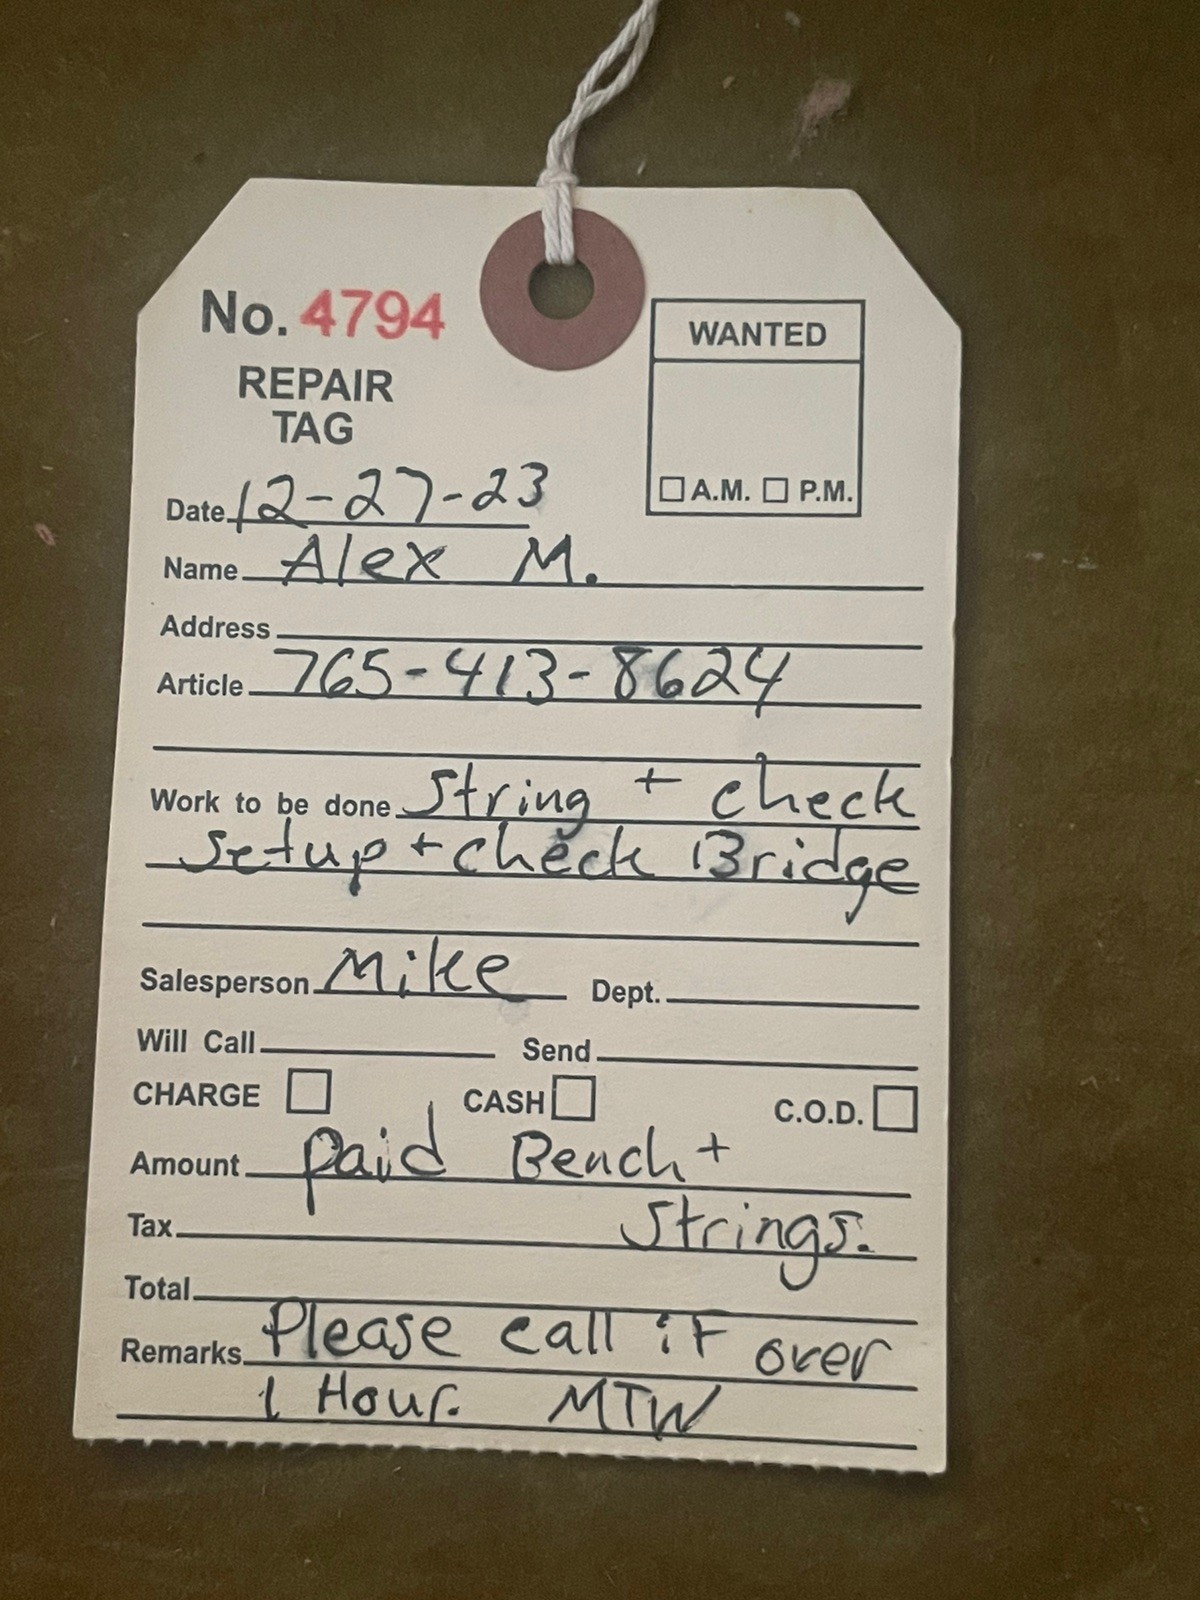 No. 4794
REPAIR
TAG
WANTED
A.M. P.M.
Date 12-27-23
Name Alex M.
Address
Article 765-413-8624
Work to be done String + check
setup + check Bridge
Salesperson Mike Dept.
Will Call Send
CHARGE CASH C.O.D.
Amount paid Bench +
Tax Strings.
Total
Remarks Please call if over
1 Hour. MTW